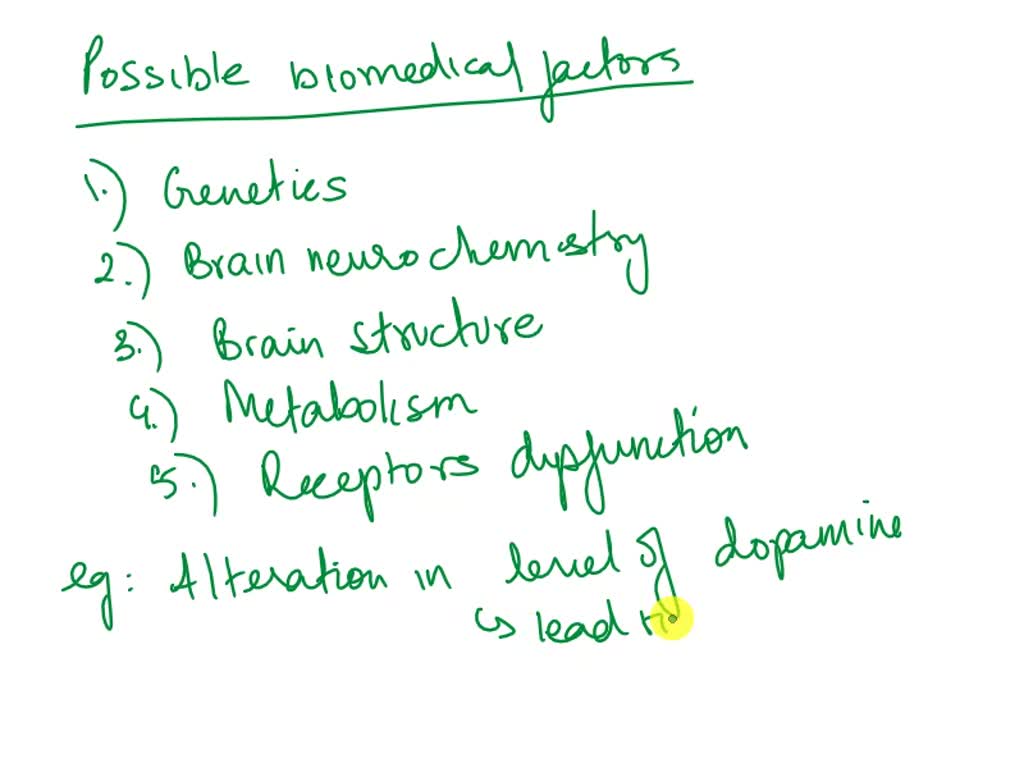 Possible biomedical factors
1.) Genetics
2.) Brain neurochemistry
3.) Brain structure
4.) Metabolism
5.) Receptors dysfunction
eg: Alteration in level of dopamine
↳ lead